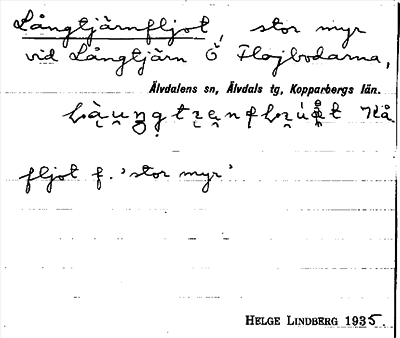 Långtjärnfljot, stor myr
vid Långtjärn Ö Flojbodarna,
Älvdalens sn, Älvdals tg, Kopparbergs län.
fljot f. 'stor myr'
HELGE LINDBERG 1935.